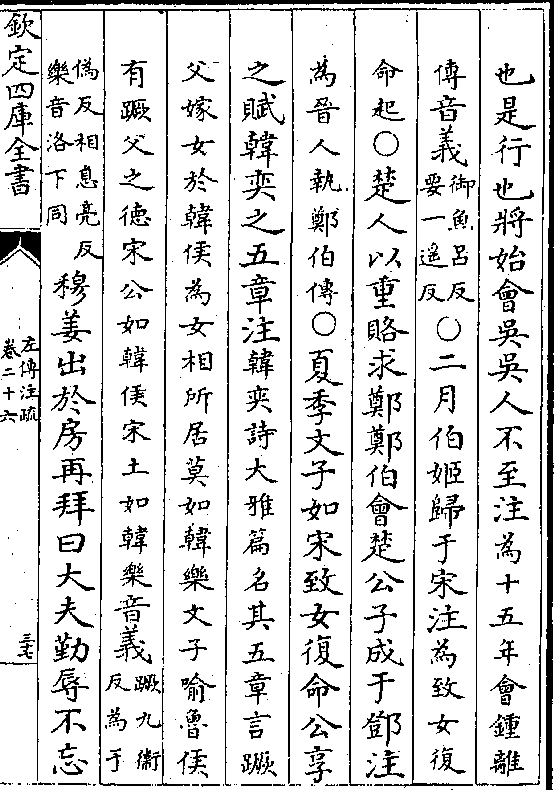 也是行也將始會吳吳人不至注為十五年會鍾離
傳音義御魚呂反要一遥反○二月伯姬歸于宋注為致女復
命起○楚人以重賂求鄭鄭伯會楚公子成于鄧注
為晉人執鄭伯傳○夏季文子如宋致女復命公享
之賦韓奕之五章注韓奕詩大雅篇名其五章言蹶
父嫁女於韓侯為女相所居莫如韓樂文子喻魯侯
有蹶父之德宋公如韓侯宋土如韓樂音義蹶九衞反為于
偽反相息亮反樂音洛下同穆姜出於房再拜曰大夫勤辱不忘
欽定四庫全書
左傳注疏
卷二十六
三七